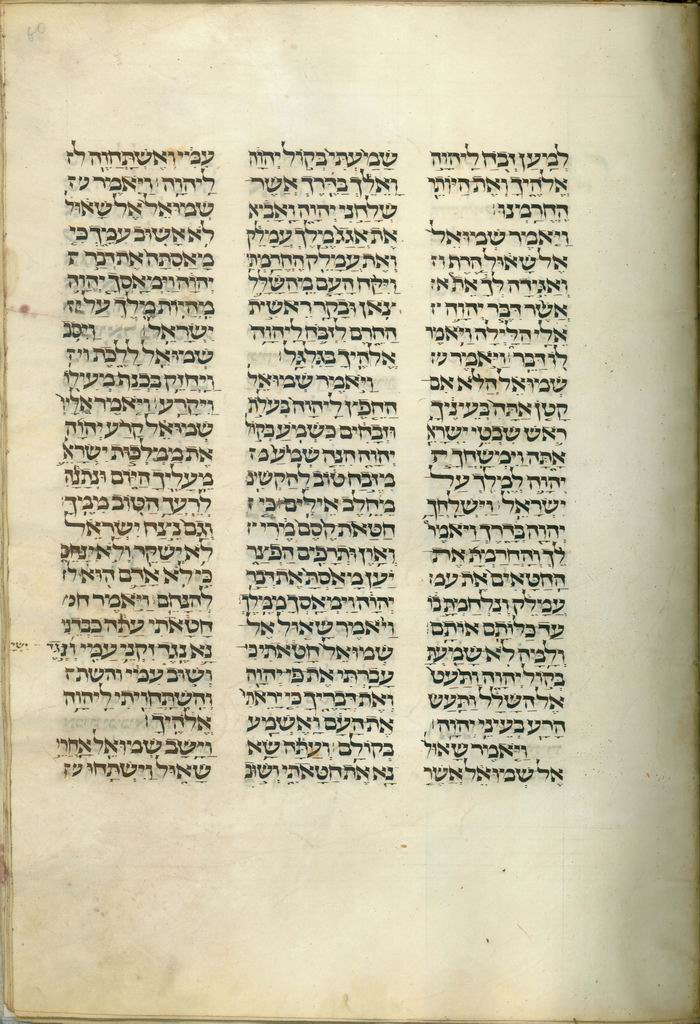 למען זבח ליהוה
אלהיך ואת היותר
החרמנו
ויאמר שמואל
אל שאול הרף
ואגידה לך את א
אשר דבר יהוה
אלי הלילה ויאמר
לו דבר ויאמר
שמואל הלא אם
קטן אתה בעיניך
ראש שבטי ישרא
אתה וימשחך
יהוה למלך על
ישראל וישלחך
יהוה בדרך ויאמר
לך והחרמת את
החטאים את עמ
עמלק ונלחמת בו
עד כלותם אותם
ולמה לא שמעת
בקול יהוה ותעט
אל השלל ותעש
הרע בעיני יהוה
ויאמר שאול
אל שמואל אשר
שמעתי בקול יהוה
ואלך בדרך אשר
שלחני יהוה ואביא
את אגג מלך עמלק
ואת עמלק החרמתי
ויקח העם מהשלל
צאן ובקר ראשית
החרם לזבח ליהוה
אלהיך בגלגל
ויאמר שמואל
החפץ ליהוה בעלות
וזבחים כשמע בקול
יהוה הנה שמע מ
מזבח טוב להקשיב
מחלב אילים כי
חטאת קסם מרי
ואון ותרפים הפצר
יען מאסת את דבר
יהוה וימאסך ממלך
ויאמר שאול אל
שמואל חטאתי כי
עברתי את פי יהוה
ואת דבריך כי יראתי
את העם ואשמע
בקולם ועתה שא
נא את חטאתי ושוב
עמי ואשתחוה ל
ליהוה ויאמר
שמואל אל שאול
לא אשוב עמך כי
מאסתה את דבר
יהוה וימאסך יהוה
מהיות מלך על
ישראל ויסב
שמואל ללכת
ויחזק בכנף מעילו
ויקרע ויאמר אליו
שמואל קרע יהוה
את ממלכות ישרא
מעליך היום ונתנה
לרעך הטוב ממך
וגם נצח ישראל
לא ישקר ולא ינחם
כי לא אדם הוא ל
להנחם ויאמר חט
חטאתי עתה כבדני
נא נגד זקני עמי ונגד ישר
ושוב עמי והשת
והשתחויתי ליהוה
אלהיך
וישב שמואל אחרי
שאול וישתחו